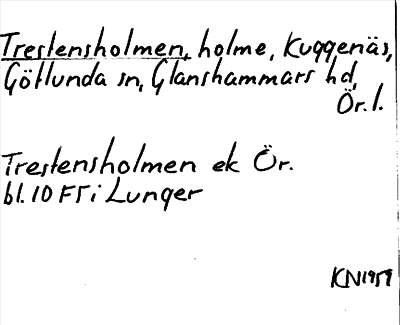 Trestensholmen, holme, Kuggenäs,
Götlunda sn, Glanshammars hd,
Ör. l.
Trestensholmen ek Ör.
bl. 10 FT i Lunger
KN 1959